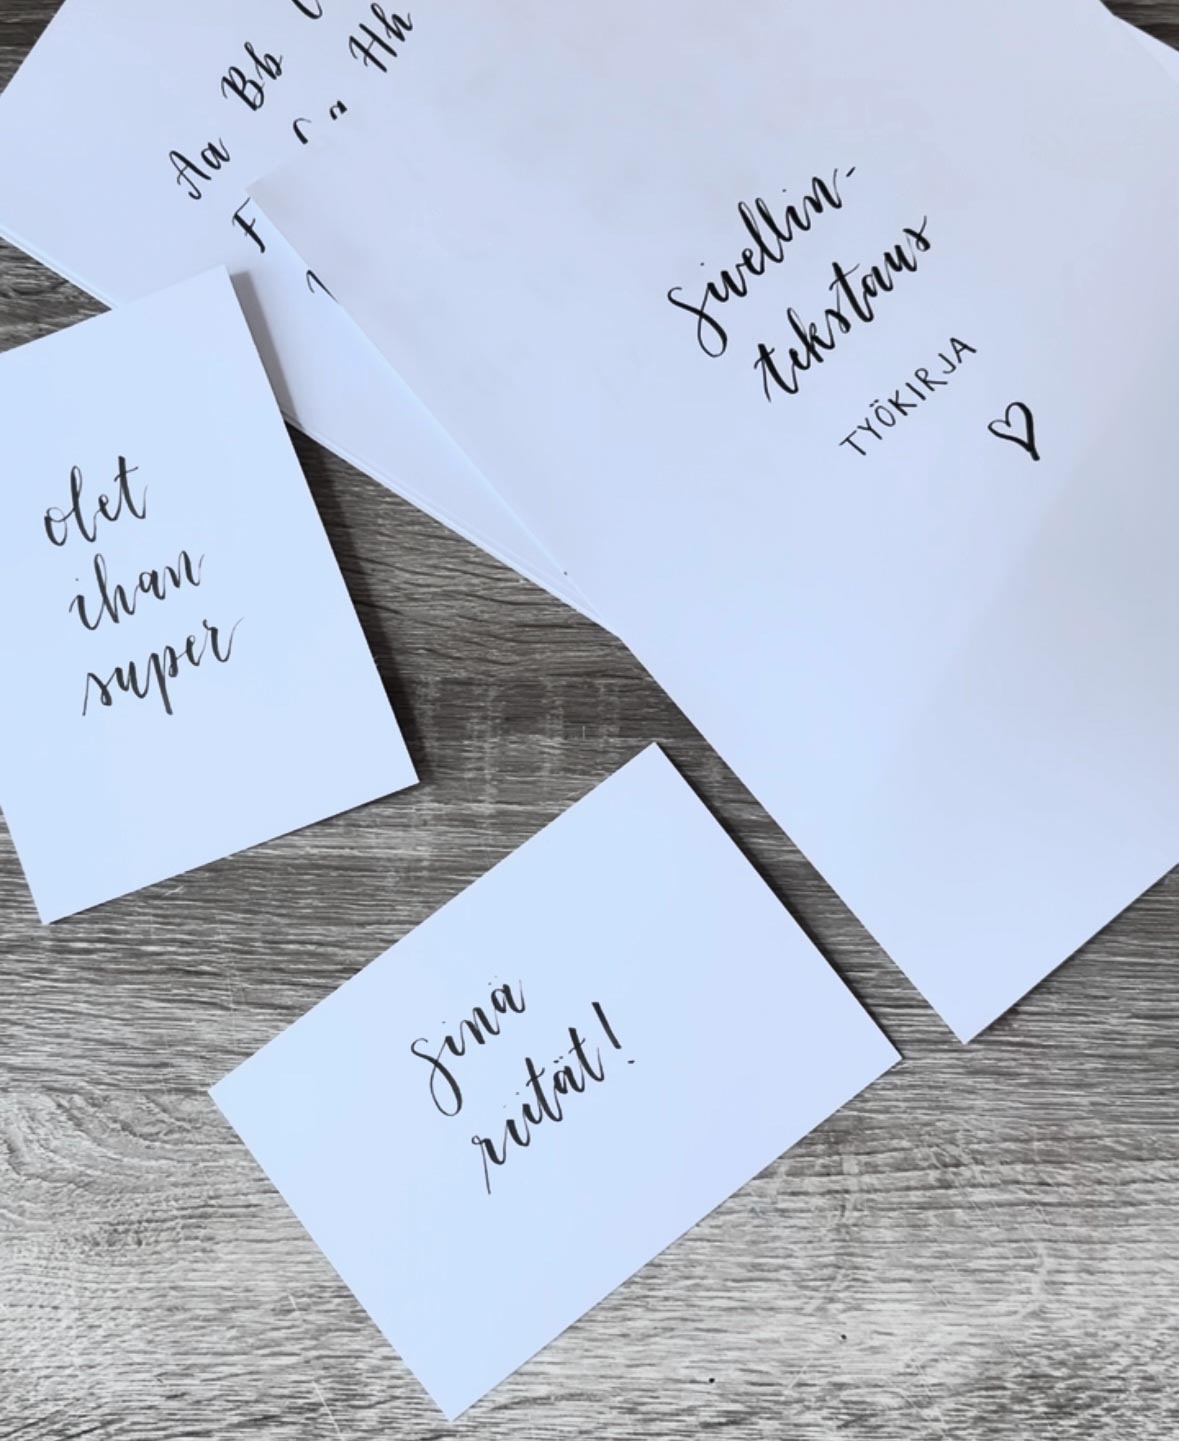 Aa Bb
Hh
F
sivellin-
tekstaus
TYÖKIRJA
olet
ihan
super
sinä
riität!